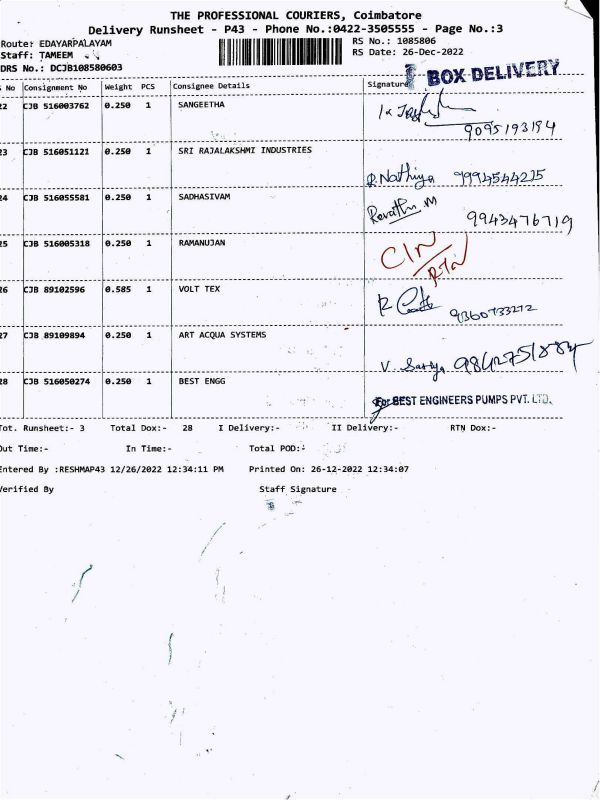 THE PROFESSIONAL COURIERS, Coimbatore
Delivery Runsheet - P43 - Phone No.:0422-3505555 - Page No.:3
Route: EDAYARPALAYAM RS No.: 1085806
Staff: TAMEEM RS Date: 26-Dec-2022
DRS No.: DCJB108580603
BOX DELIVERY
No Consignment No Weight PCS Consignee Details Signature
22 CJB 516003762 0.250 1 SANGEETHA
9095193194
23 CJB 516051121 0.250 1 SRI RAJALAKSHMI INDUSTRIES
R. Nathiya 9994544215
24 CJB 516055581 0.250 1 SADHASIVAM
Revathi M 9943476719
25 CJB 516005318 0.250 1 RAMANUJAN
C/N
RTN
26 CJB 89102596 0.585 1 VOLT TEX
9360733272
27 CJB 89109894 0.250 1 ART ACQUA SYSTEMS
V. Sarya
28 CJB 516050274 0.250 1 BEST ENGG
For BEST ENGINEERS PUMPS PVT. LTD.
Tot. Runsheet:- 3 Total Dox:- 28 I Delivery:- II Delivery:- RTN Dox:-
Out Time:- In Time:- Total POD:-
Entered By :RESHMAP43 12/26/2022 12:34:11 PM Printed On: 26-12-2022 12:34:07
Verified By Staff Signature